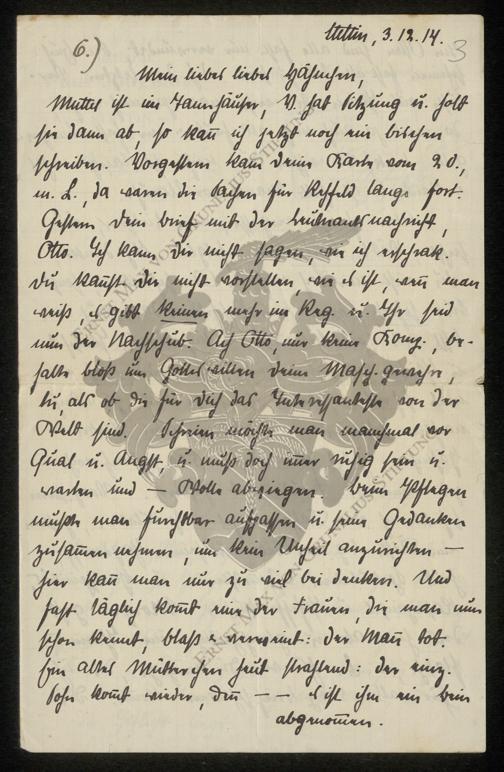 6.)
Stettin, 3.12.14.
3
Mein liebes liebes Hähnchen,
Mutter ist im Tannhäuser, V. hat Sitzung u. holt
sie dann ab, so kann ich jetzt noch ein bischen
schreiben. Vorgestern kam deine Karte vom 20.,
m. L., da waren die Sachen für Rehfeld längs fort.
Gestern dein Brief mit der Leutnantsnachricht,
Otto. Ich kann dir nicht sagen, wie ich erschrak.
Du kannst dir nicht vorstellen, wie es ist, wenn man
weiß, es gibt keinen mehr im Reg. u. Ihr seid
nun der Nachschub. Ach Otto, nur keine Komp., be-
halte bloß um Gottes willen deine Masch.gewehre,
tu, als ob die für dich das Interessanteste von der
Welt sind. Schreien möchte man manchmal vor
Qual u. Angst, u. muß doch immer ruhig sein u.
warten und — Wolle abwiegen. Beim Pflegen
mußte man furchtbar aufpassen u. seine Gedanken
zusammen nehmen, um kein Unheil anzurichten —
hier kann man nur zu viel bei denken. Und
fast täglich kommt eine der Frauen, die man nun
schon kennt, blaß u. verweint: der Mann tot.
Ein altes Mütterchen heut strahlend: der einz.
Sohn kommt wieder, denn — — es ist ihm ein Bein
abgenommen.